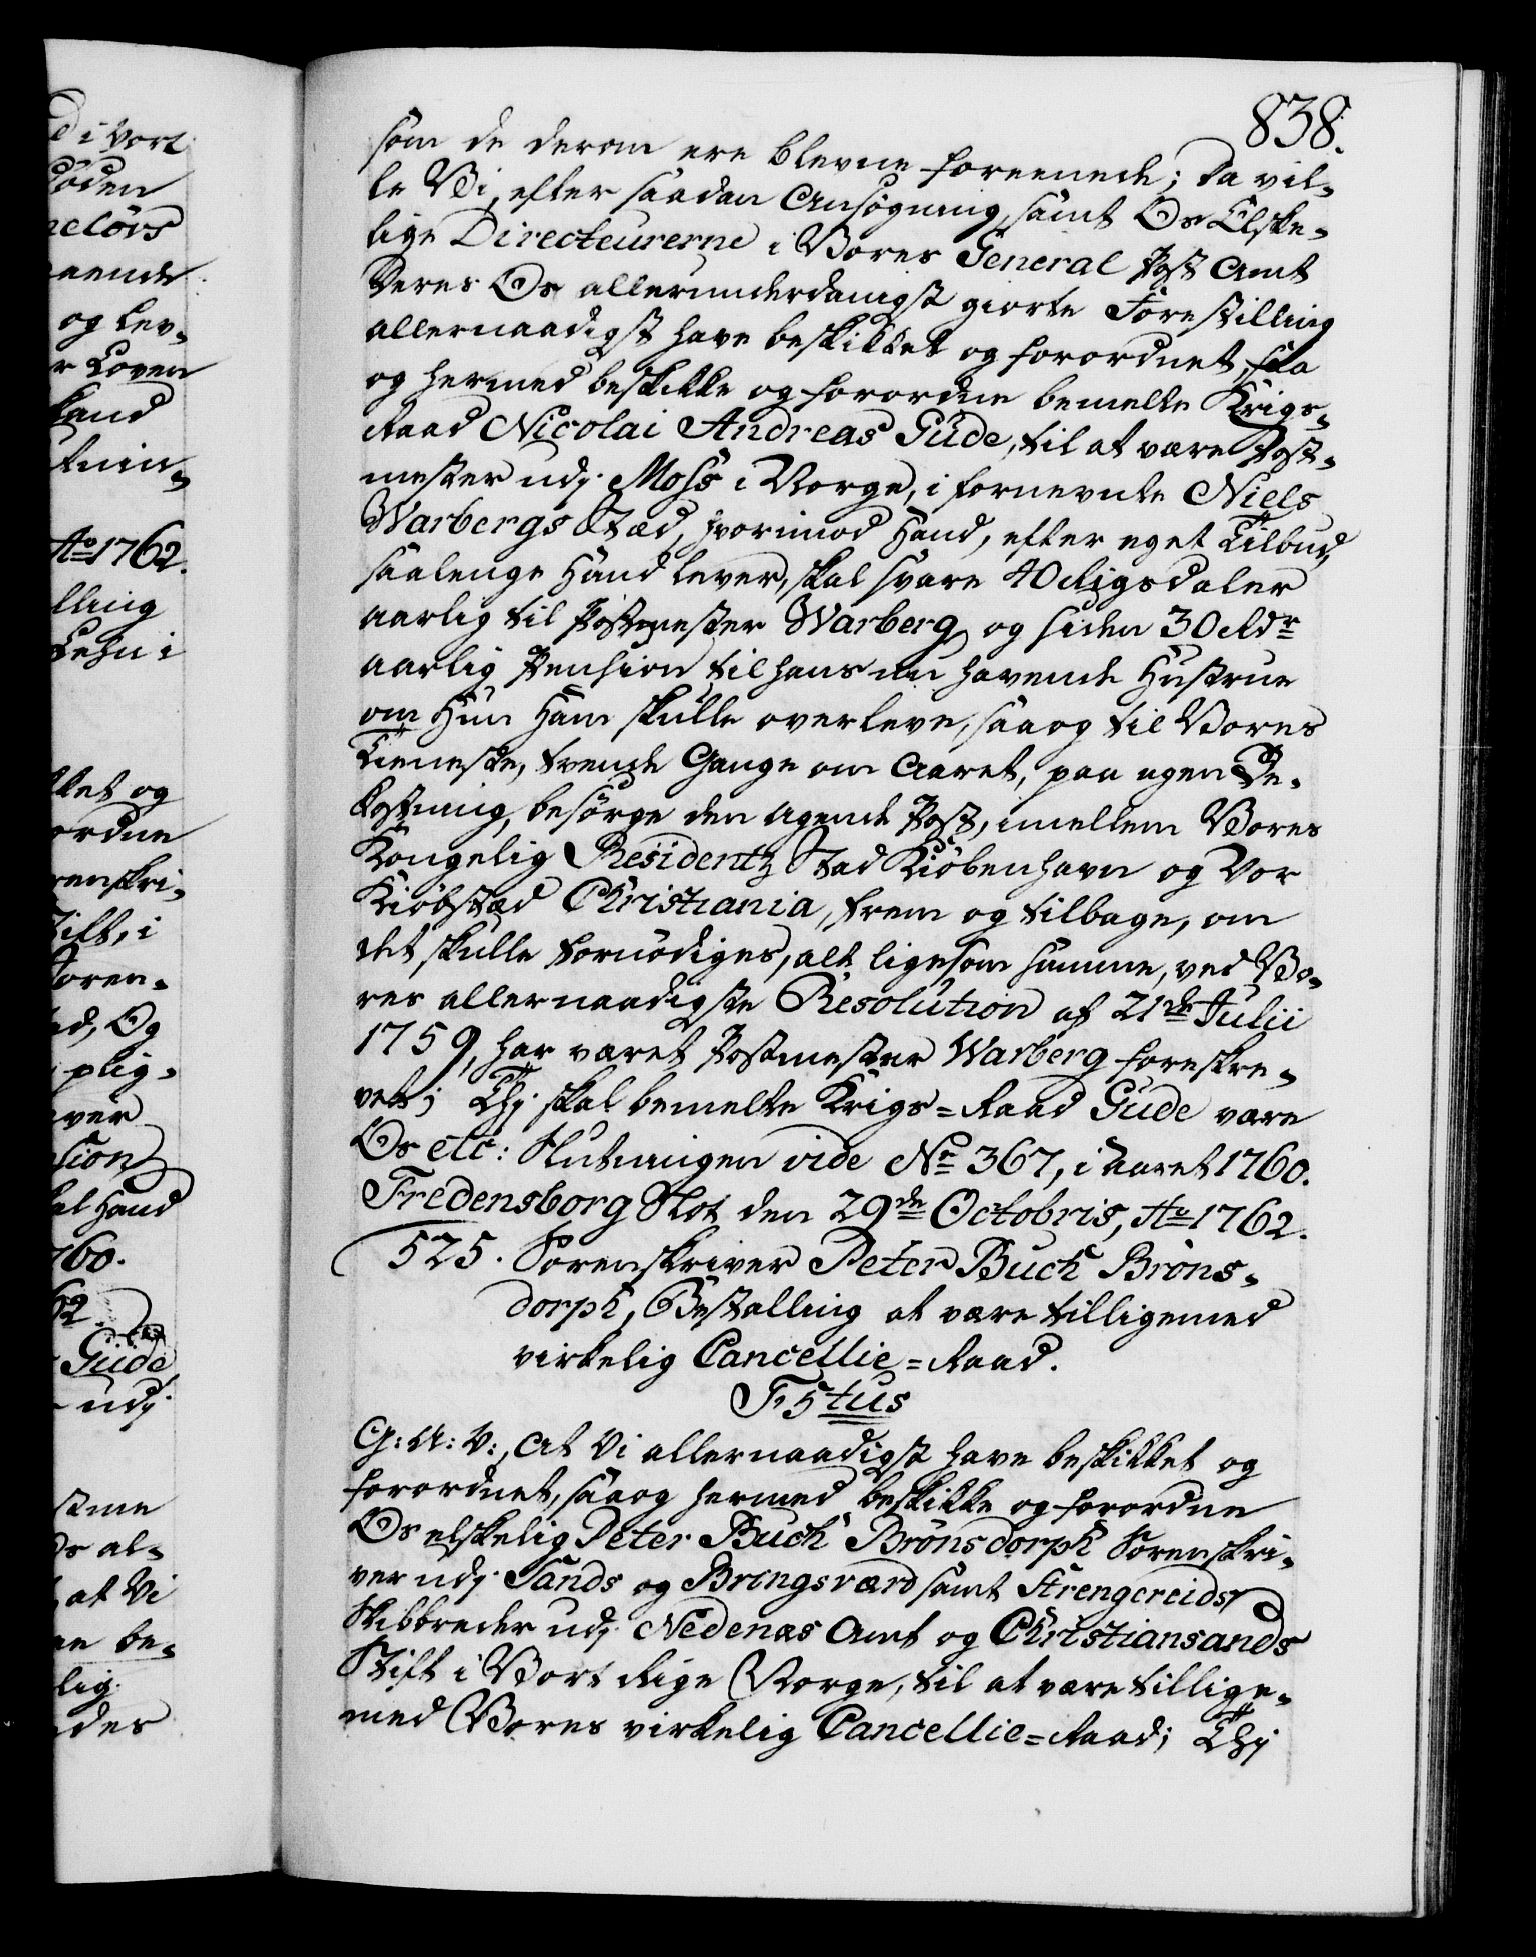 838.
som de derom ere blevne foreenede; Da vil-
le Vi, efter saadan Ansøgning, samt Os Elske-
lige Directeurerne i Vores General Post Amt
deres Os allerunderdanigst giorte Forestilling
allernaadigst have beskikket og forordnet, saa
og hermed beskikke og forordne bemelte Krigs-
Raad Nicolai Andreas Gude, til at være Post-
mester udj Moss i Norge, i fornevnte Niels
Warbergs Stæd, hvorimod Hand, efter eget Tilbud,
saalenge Hand lever, skal svare 40 Rigsdaler
aarlig til Postmester Warberg og siden 30 Rdr
aarlig Pension til hans nu havende Hustrue
om Hun Ham skulle overleve, saa og til Vores
Tieneste, tvende Gange om Aaret, paa egen Be-
kostning, besørge den agende Post, imellem Vores
Kongelig Residentz Stad Kiöbenhavn og Vor
Kiöbstæd Christiania, frem og tilbage, om
det skulle fornödiges, alt ligesom samme, ved Vo-
res allernaadigste Resolution af 21de Julii
1759, har været Postmester Warberg foreskre-
vet; Thj skal bemelte Krigs-Raad Gude være
Os etc: Slutningen vide No 367, i Aaret 1760.
Fredensborg Slot den 29de Octobris, Ao 1762.
525. Sorenskriver Peter Buch Bröns-
dorph, Bestalling at være tilligemed
virkelig Cancellie-Raad.
F5tus
G: A: V:, At Vi allernaadigst have beskikket og
forordnet, saa og hermed beskikke og forordne
Os elskelig Peter Buch Brönsdorph Sorenskri-
ver udj Sands og Bringsværd samt Strengereids
Skibbreder udj Nedenæs Amt og Christiansands
Stift i Vort Rige Norge, til at være tillige-
med Vores virkelig Cancellie-Raad; Thj